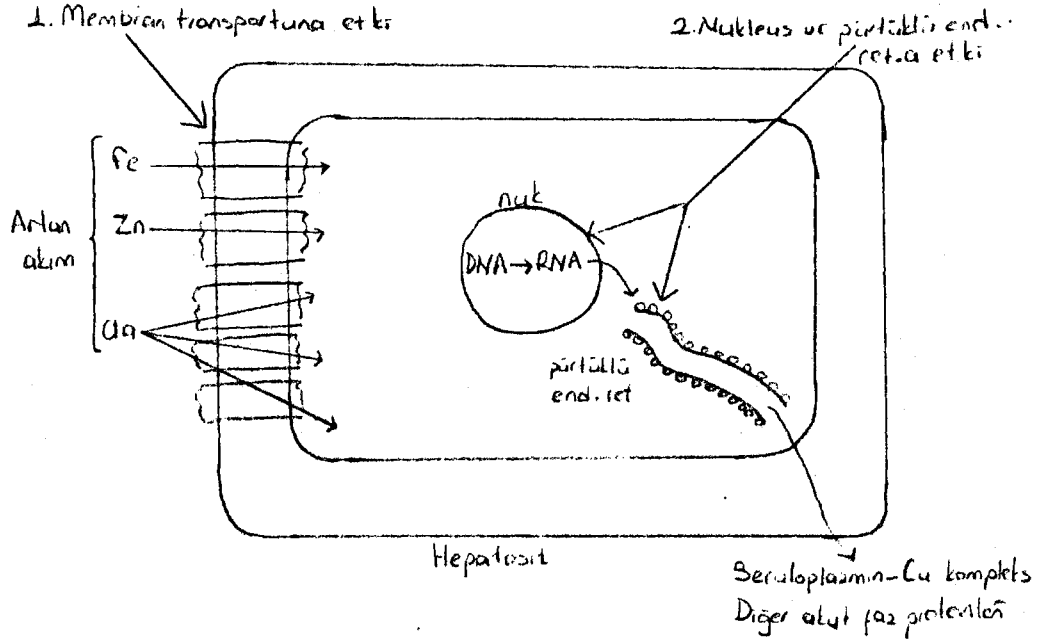 1. Membran transportuna etki
2. Nukleus ve pürtüklü end.
ret.a etki
Artan
akım
Fe
Zn
aa
nuk
DNA→RNA
pürtüklü
end. ret
Hepatosit
Seruloplazmin-Cu kompleks
Diğer akut faz proteinleri